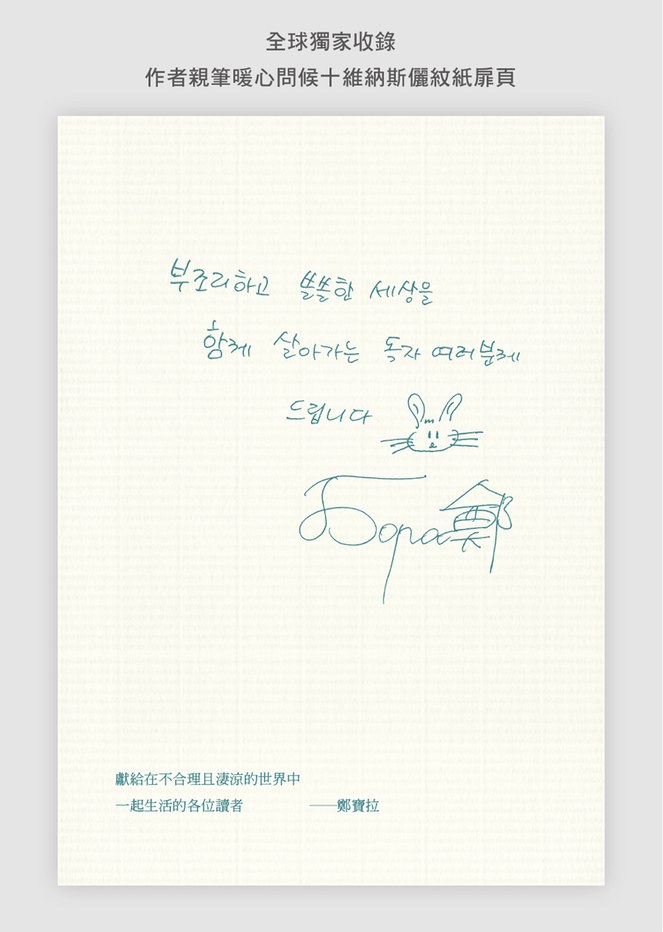 全球獨家收錄
作者親筆暖心問候十維納斯儷紋紙扉頁
부조리하고 쓸쓸한 세상을
함께 살아가는 독자 여러분께
드립니다
Bora 鄭
獻給在不合理且淒涼的世界中
一起生活的各位讀者 ——鄭寶拉